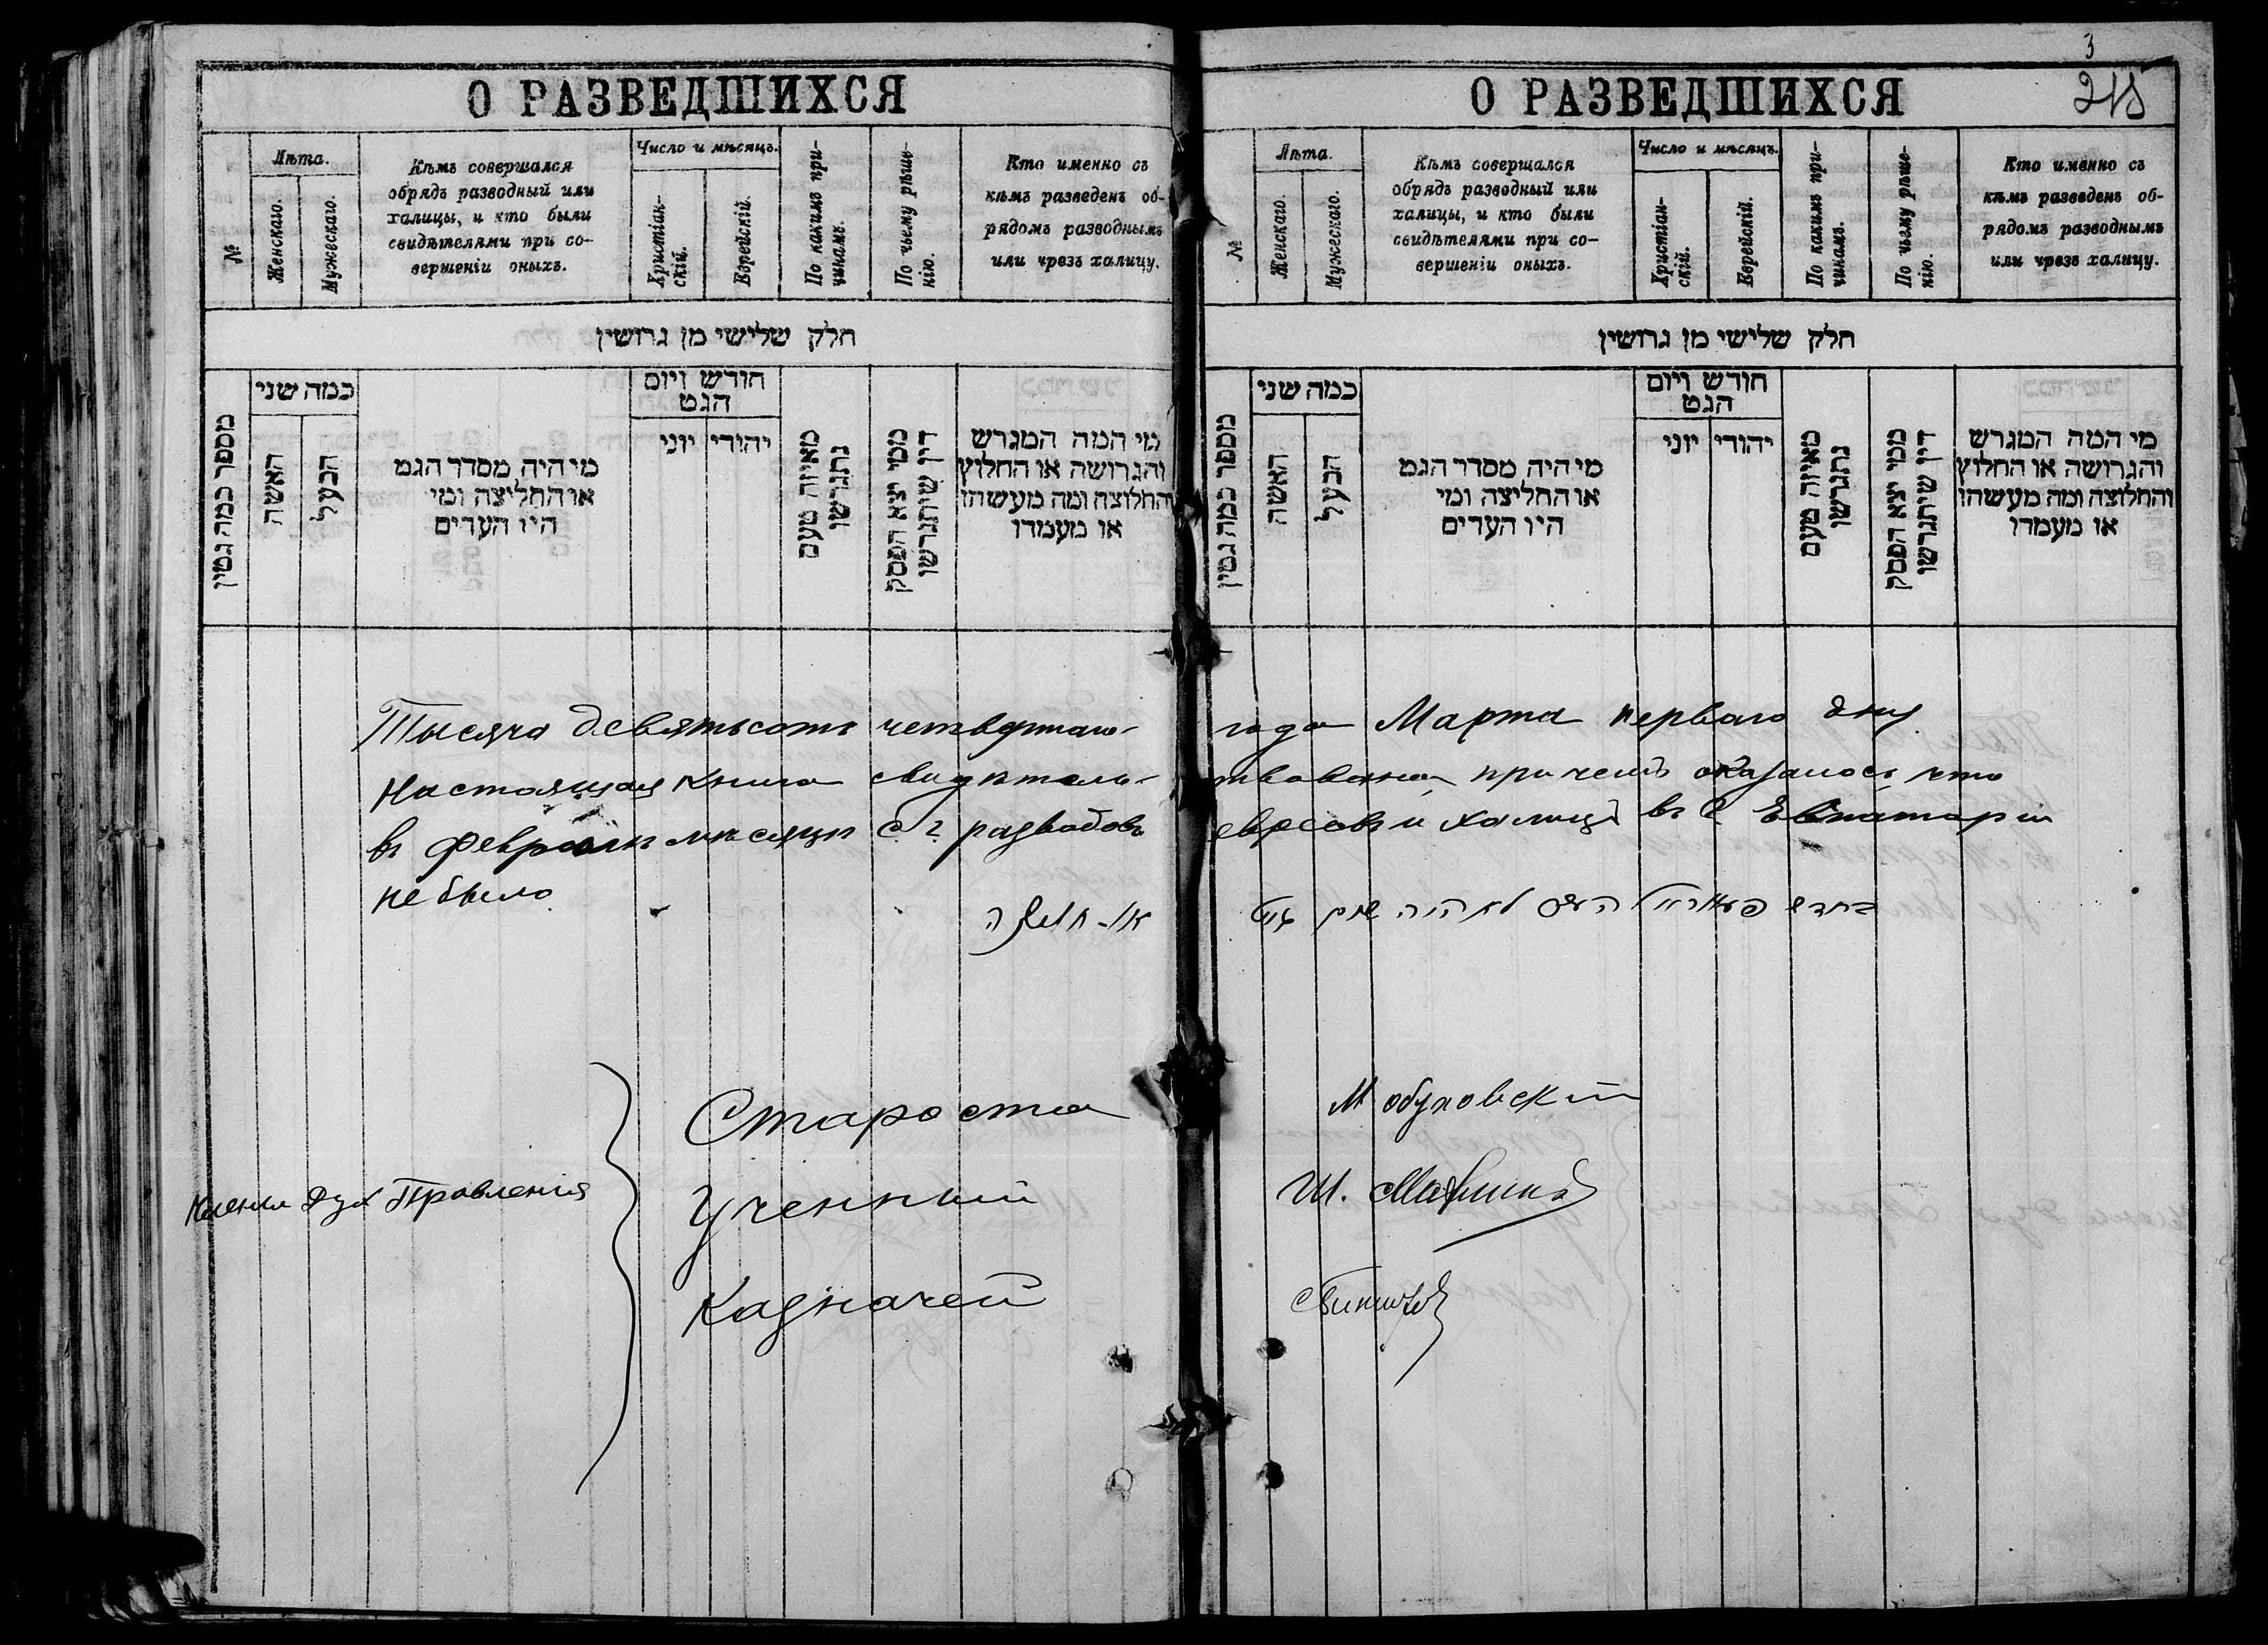 О РАЗВЕДШИХСЯ
№
Лѣта.
Женскаго.
Мужескаго.
Кѣмъ совершался
обрядъ разводный или
халицы, и кто были
свидѣтелями при со-
вершеніи оныхъ.
Число и мѣсяцъ.
Христіан-
скій.
Еврейскій.
По какимъ при-
чинамъ.
По чьему рѣше-
нію.
Кто именно съ
кѣмъ разведенъ об-
рядомъ разводнымъ
или чрезъ халицу.
חלק שלישי מן גרושין
מספר כמה גטין
כמה שני
האשה
הבעל
מי היה מסדר הגט
או החליצה ומי
היו העדים
חודש ויום
הגט
יהודי
יוני
מאיזה טעם
נתגרשו
ממי יצא הפסק
דין שיתגרשו
מי המה המגרש
והגרושה או החלוץ
והחלוצה ומה מעשהו
או מעמדו
3
215
О РАЗВЕДШИХСЯ
№
Лѣта.
Женскаго.
Мужескаго.
Кѣмъ совершался
обрядъ разводный или
халицы, и кто были
свидѣтелями при со-
вершеніи оныхъ.
Число и мѣсяцъ.
Христіан-
скій.
Еврейскій.
По какимъ при-
чинамъ.
По чьему рѣше-
нію.
Кто именно съ
кѣмъ разведенъ об-
рядомъ разводнымъ
или чрезъ халицу.
חלק שלישי מן גרושין
מספר כמה גטין
כמה שני
האשה
הבעל
מי היה מסדר הגט
או החליצה ומי
היו העדים
חודש ויום
הגט
יהודי
יוני
מאיזה טעם
נתגרשו
ממי יצא הפסק
דין שיתגרשו
מי המה המגרש
והגרושה או החלוץ
והחלוצה ומה מעשהו
או מעמדו
Тысяча девятьсотъ четвертаго года Марта перваго дня
настоящая книга свидѣтель-ствована, при чемъ оказалось что
въ Февралѣ мѣсяцѣ с. г. разводовъ евреевъ и халицъ въ г. Евпаторіи
не было
לא היה שום גט
Члены Дух Правленія
Староста
Ученный Ш.
Казначей